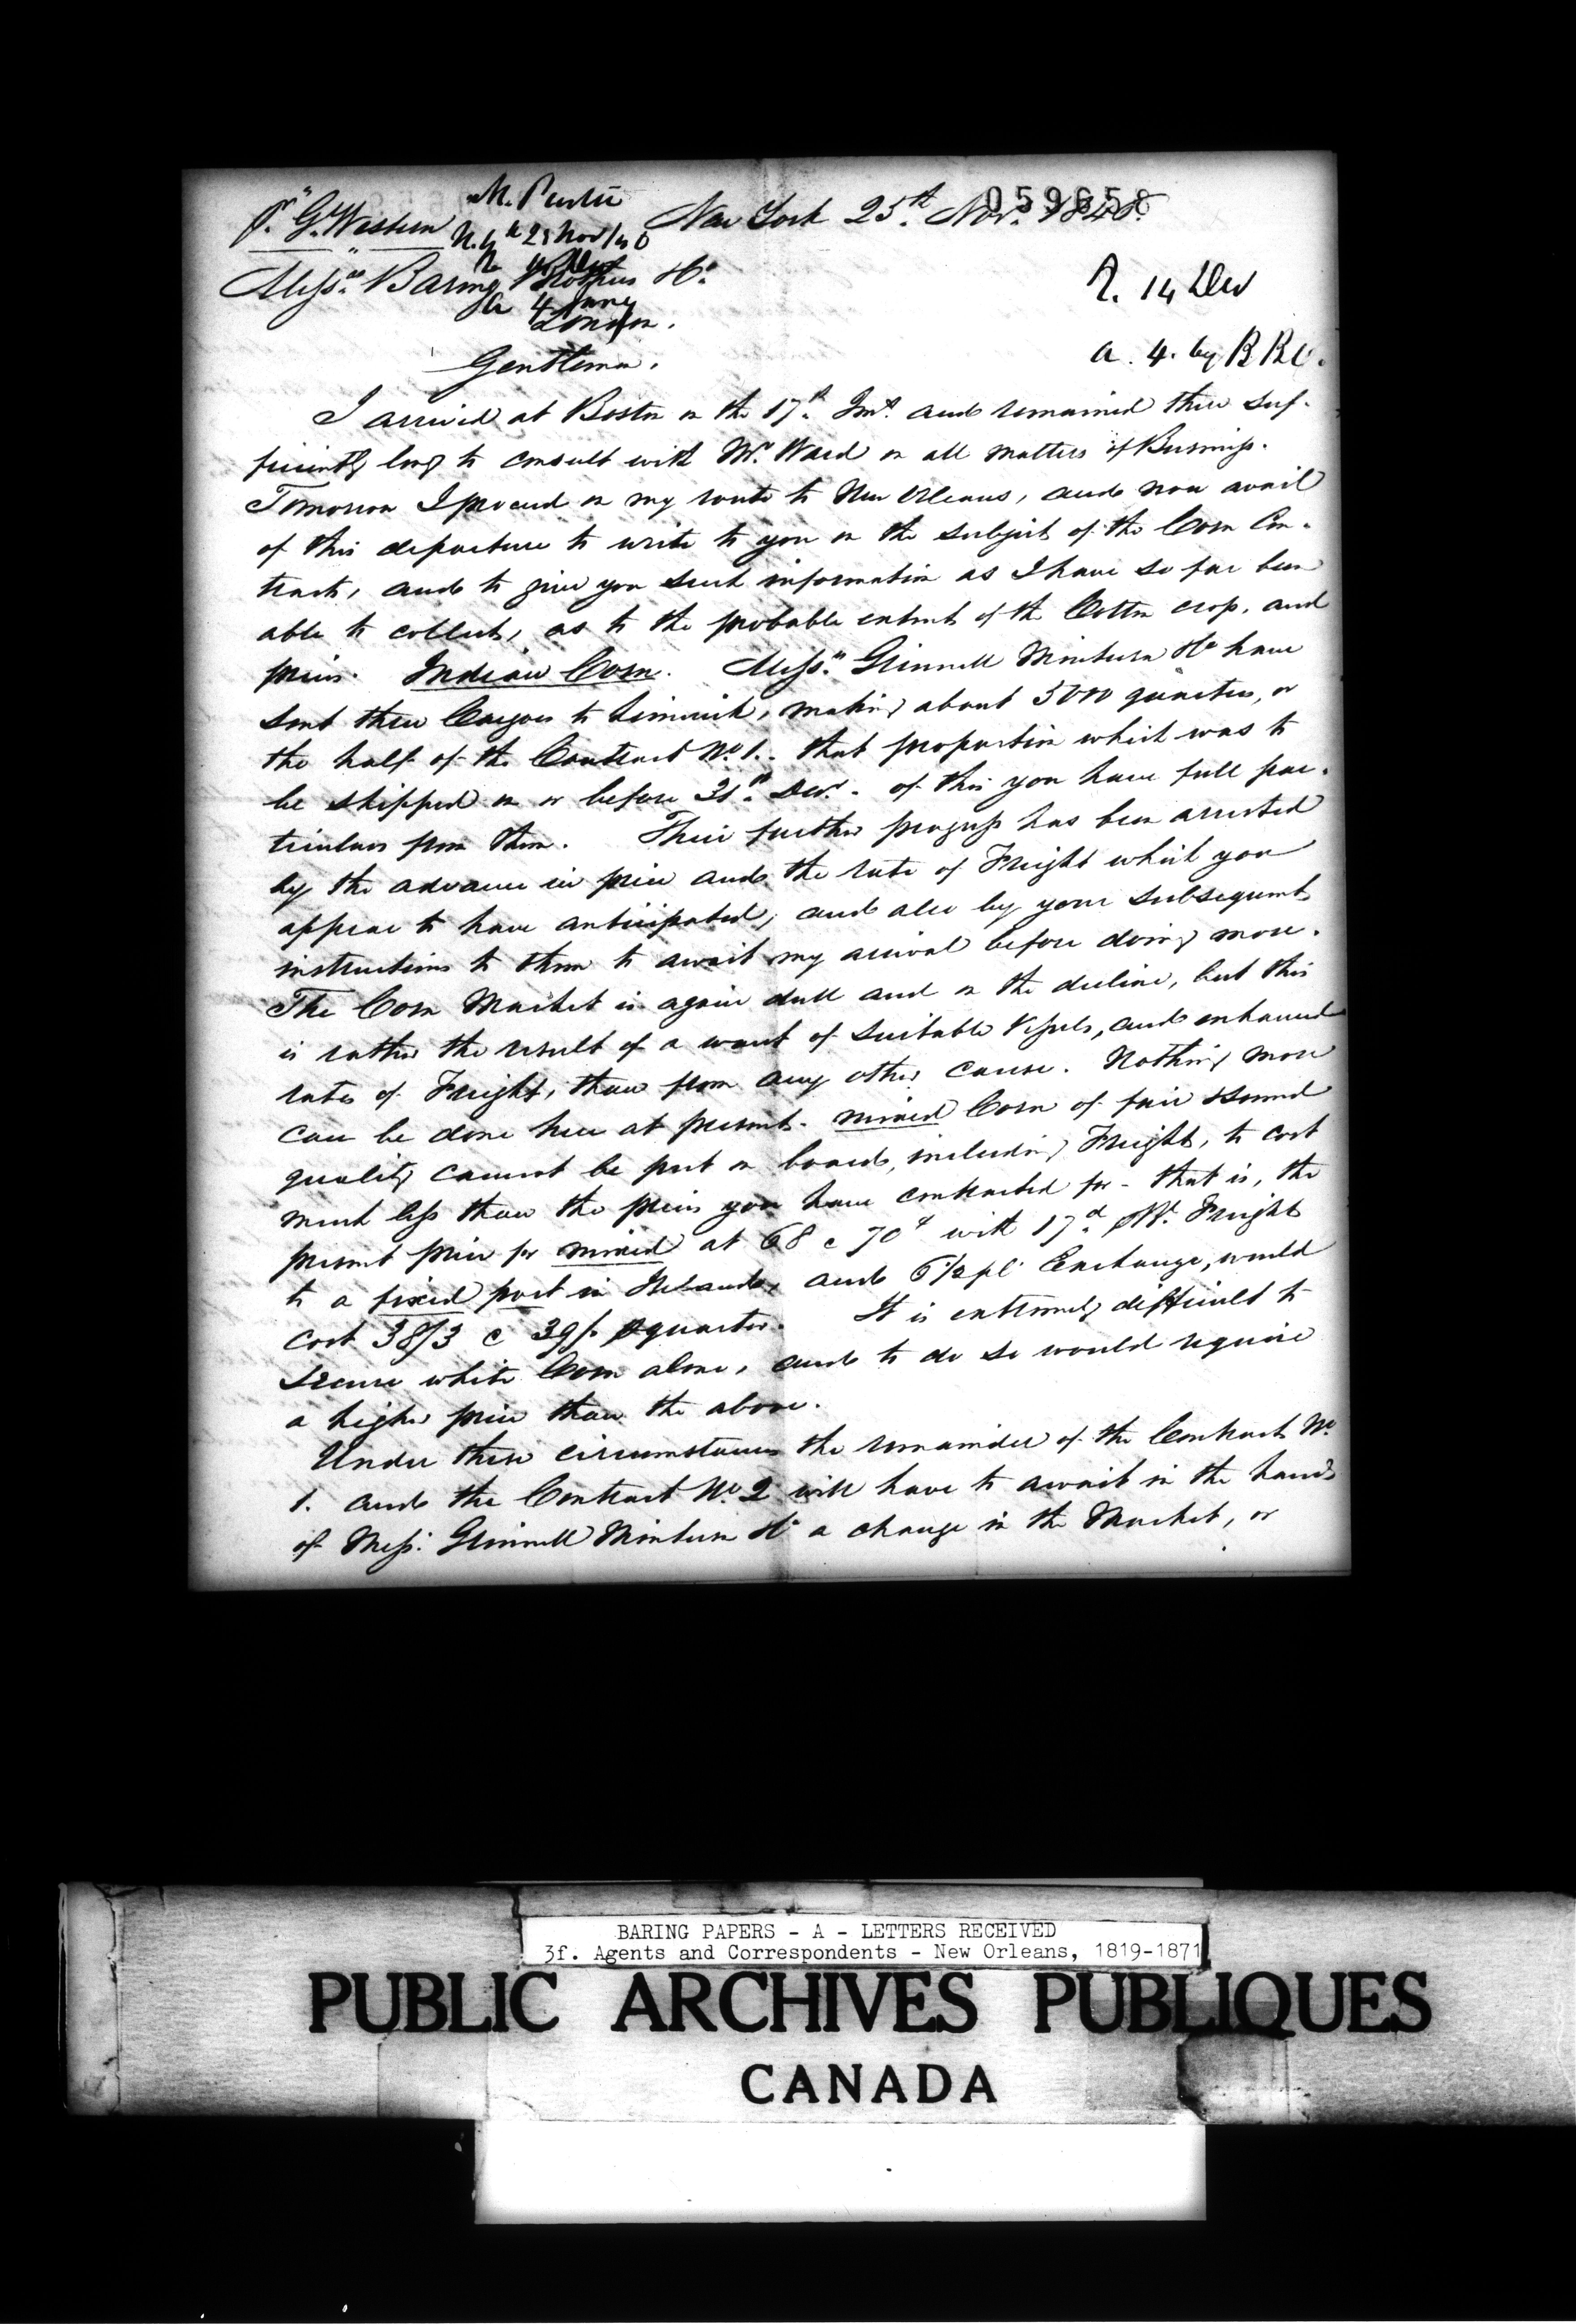 059658
New York 25th Novr. 1846.
pr. "G. Western"
N.Y. 25 Nov/46
Messrs. Baring Brothers & Co.
a 4 Jany
London.
R. 14 Dec
a. 4. by BB&Co.
Gentlemen.
I arrived at Boston on the 17th. Inst. and remained there suf-
ficiently long to consult with Mr. Ward on all matters of Business.
Tomorrow I proceed on my route to New Orleans, and now avail
of this departure to write to you on the subject of the Corn Con-
tract, and to give you such information as I have so far been
able to collect, as to the probable extent of the Cotton crop, and
prices. Indian Corn. Messrs. Grinnell Minturn & Co have
sent three Cargoes to Limerick, making about 5000 quarters, or
the half of the Contract No. 1. that proportion which was to
be shipped on or before 31st. Decr. - of this you have full par-
ticulars from them. Their further progress has been arrested
by the advance in price and the rate of Freight which you
appear to have anticipated, and also by your subsequent
instructions to them to await my arrival before doing more.
The Corn Market is again dull and on the decline, but this
is rather the result of a want of suitable Vessels, and enhanced
rates of Freight, than from any other cause. Nothing more
can be done here at present. mixed Corn of fair sound
quality cannot be put on board, including Freight, to cost
much less than the prices you have contracted for - that is, the
present price for mixed at 68 c 70 with 17d. Freight
to a fixed port in Ireland, and 6½ pC Exchange, would
cost 38/3 c 39/. p quarter. It is extremely difficult to
secure white Corn alone, and to do so would require
a higher price than the above.
Under these circumstances the remainder of the Contract No.
1. and the Contract No. 2 will have to await in the hands
of Mess. Grinnell Minturn & Co a change in the Market, or
BARING PAPERS - A - LETTERS RECEIVED
3f. Agents and Correspondents - New Orleans, 1819-1871
PUBLIC ARCHIVES PUBLIQUES
CANADA